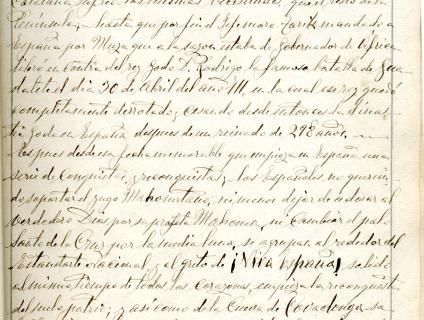 Cataluña sufrió las mismas vicisitudes que el resto de la
Península; hasta que por fin el sefi moro Tarik mandado a
España por Muza que a la sazon estaba de gobernador de Africa
libró en contra del rey godo D. Rodrigo la famosa batalla de Gua-
dalete el dia 30 de Abril del año 711, en la cual ese rey quedó
completamente derrotado; cesando desde entonces la dinas-
tia goda en España despues de un reinado de 298 años.
Despues desde esa fecha memorable que empieza en España una
serie de conquistas, y reconquistas; los Españoles no querien-
do soportar el yugo Mahometano, ni menos dejar de adorar al
verdadero Dios por su profeta Mahoma, ni cambiar el pale
Santo de la Cruz por la media luna, se agrupan al rededor del
Estandarte nacional, y al grito de ¡Viva España! salido
al mismo tiempo de todos los corazones, empieza la reconquista
del suelo patrio; y asi como de la Cueva de Covadonga sa